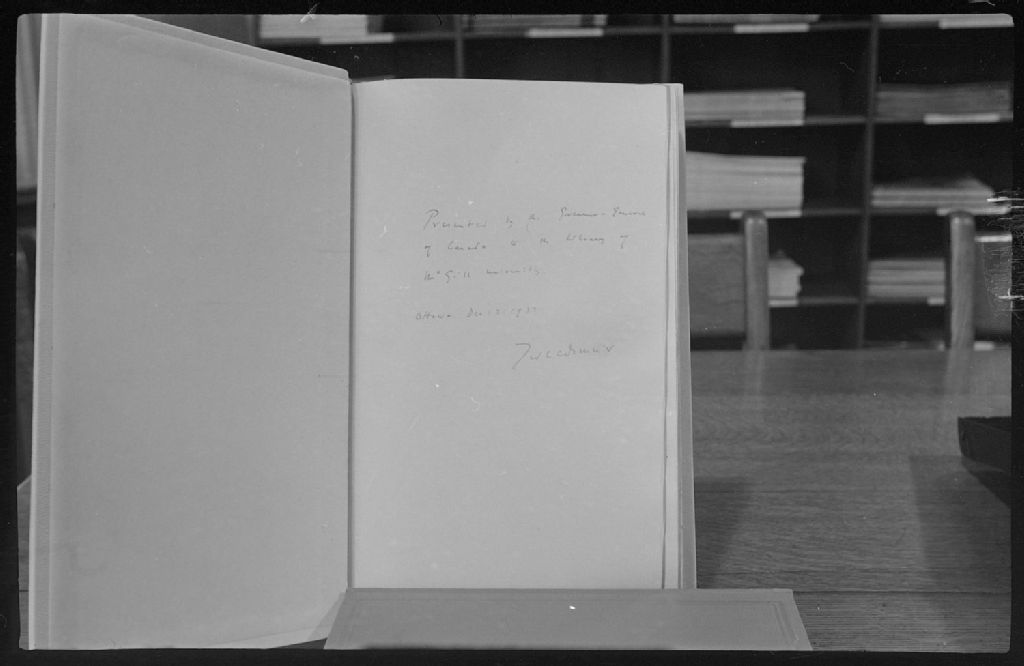 Presented by the Governor-General
of Canada to the Library of
McGill University.
Ottawa Dec
Tweedsmuir